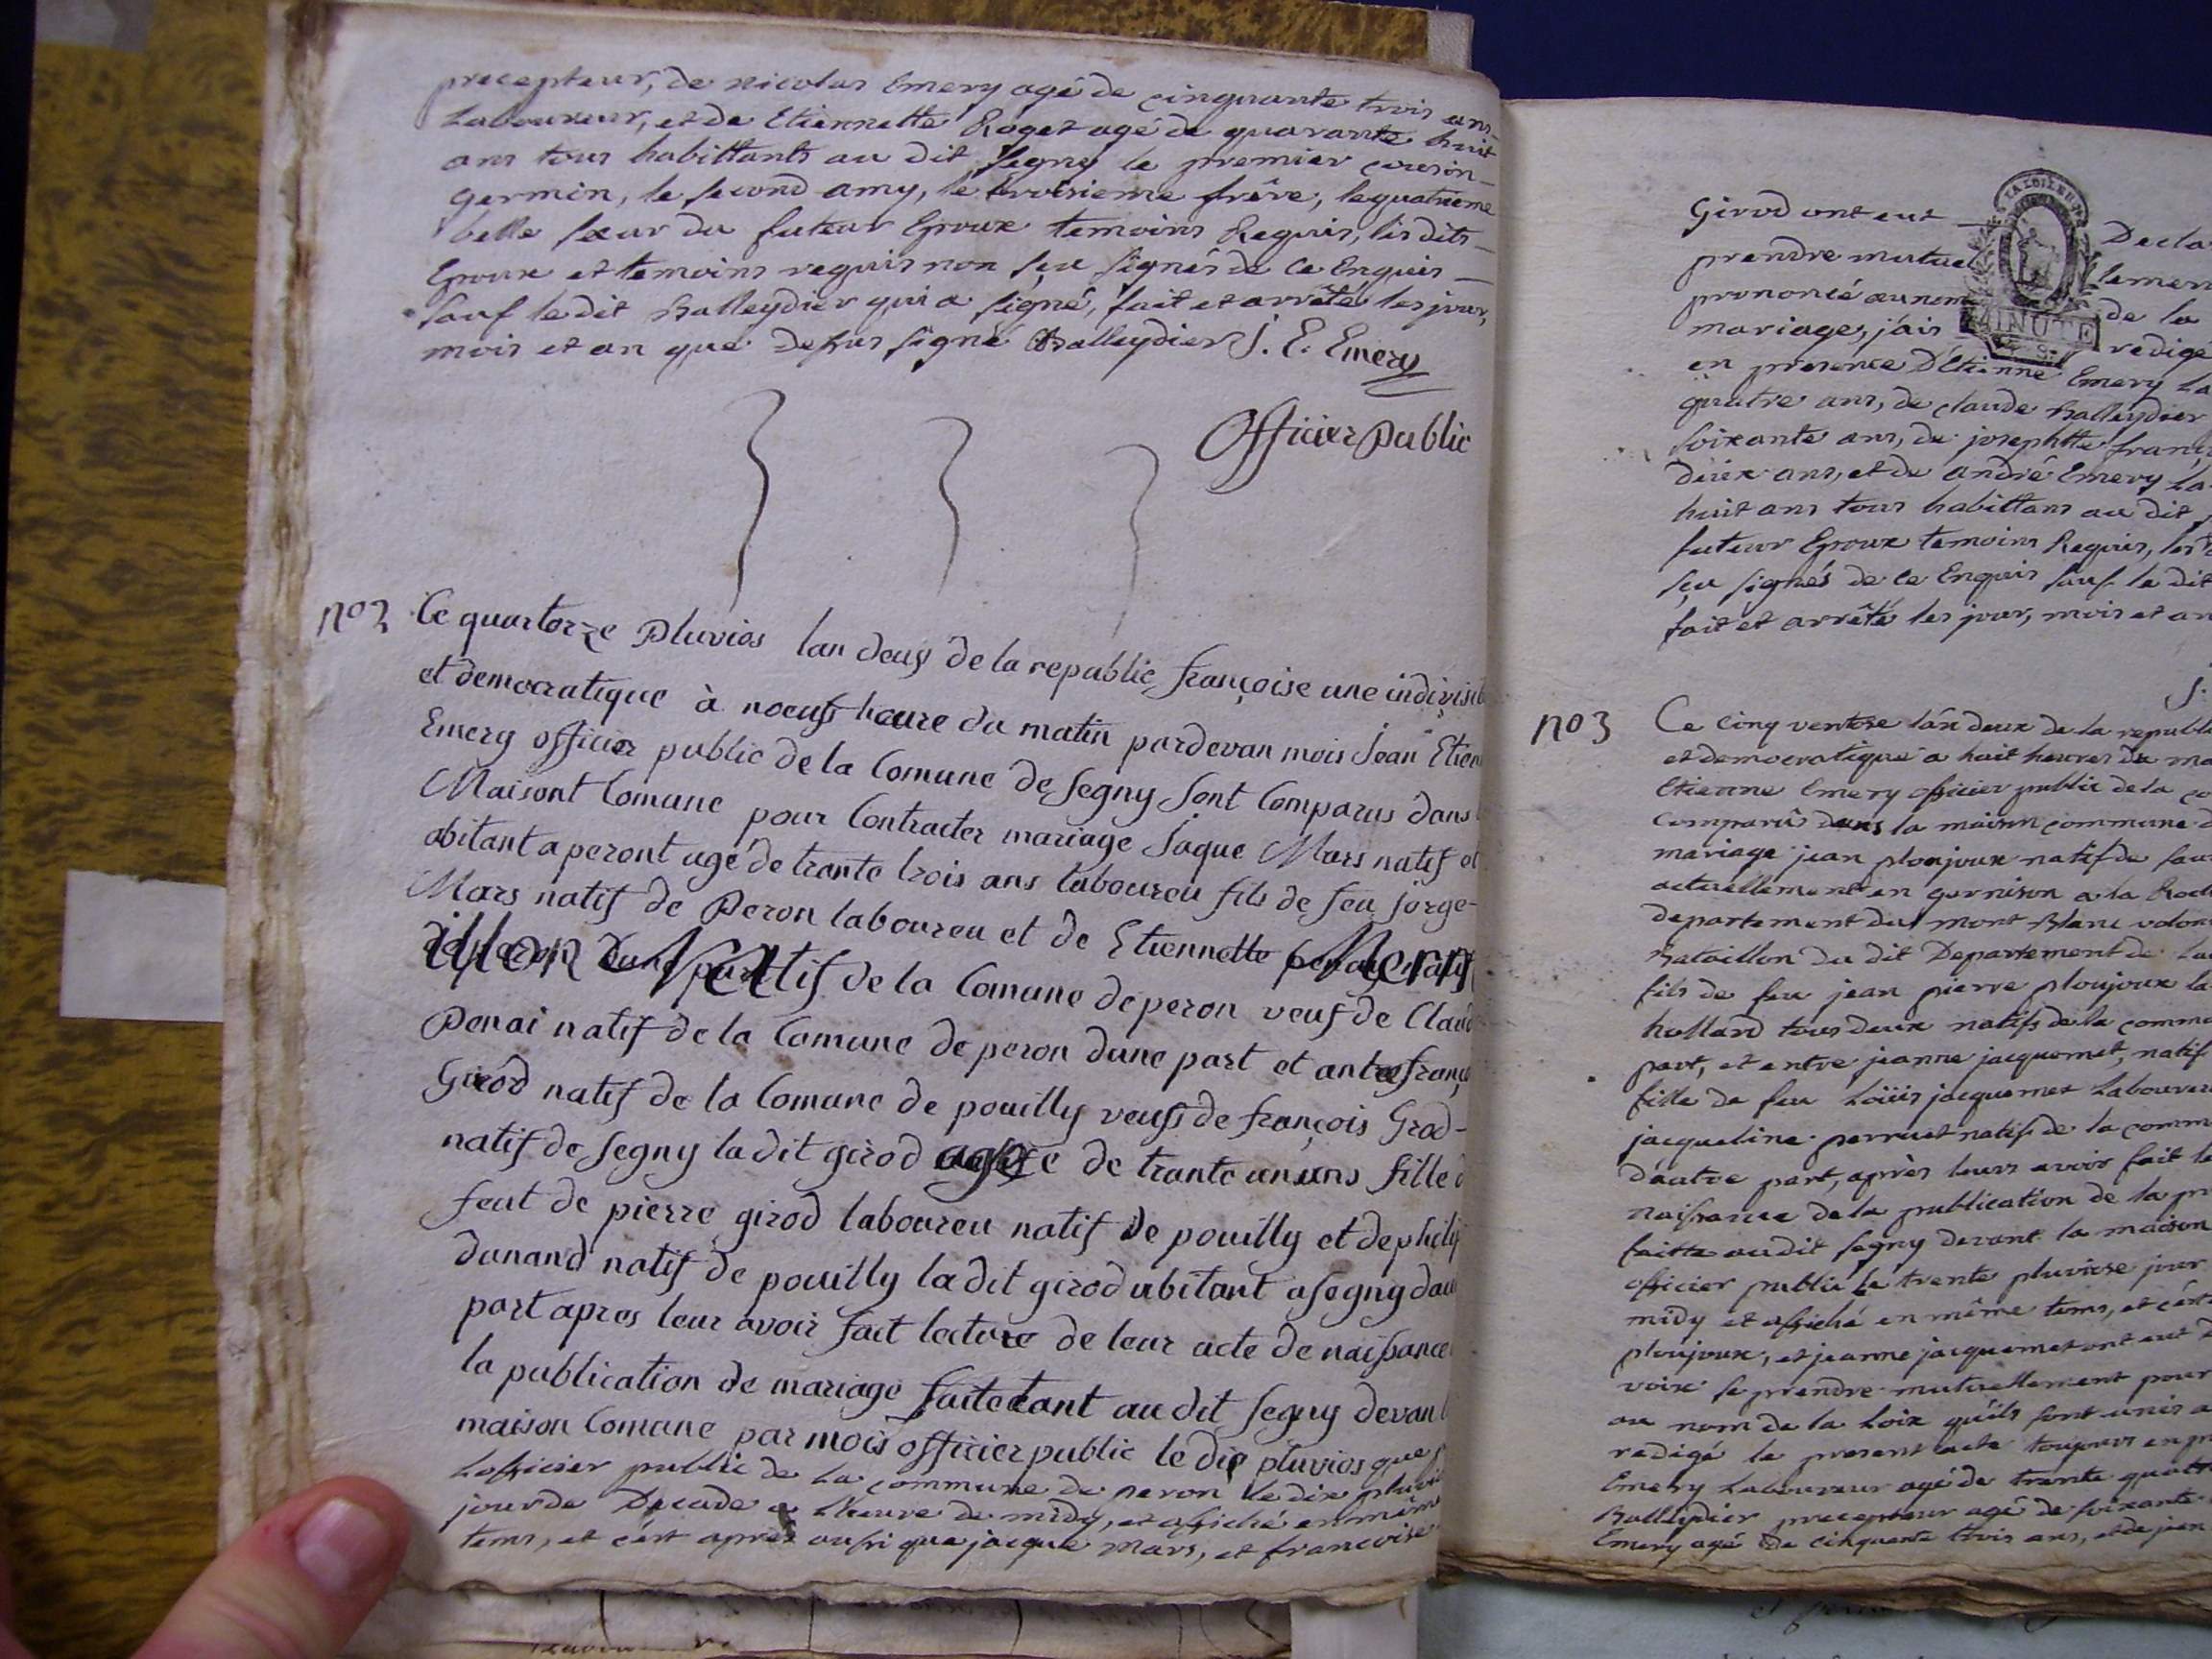 precepteur, de nicolas Emery agé de cinquante trois ans
Laboureur, et de Etiennette Roget agé de quarante huit
ans tous habittants au dit segny le premier cousin
germin, le second amy, le troisieme frére, le quatrieme
belle sœur du futeur Epoux temoins Requis, les dits
Epoux et temoins requis non sçu signés de ce Enquis
sauf le dit Balleydier qui a signé, fait et arrêté les jour,
mois et an que dessus signé Balleydier J. E. Emery
Officier Public
no 2 Ce quartorze Pluvios lan deux de la republic françoise une indivisib
et democratique à noeuf heure du matin pardevan mois Jean Etien
Emery officier public de la Comune de segny sont Comparus dans
Maisont Comune pour Contracter mariage Jaque Mars natif et
abitant a peront agé de trante trois ans laboureu fils de feu jorge
Mars natif de Peron laboureu et de Etiennette
natif de la Comune de peron veuf de Claud
Penai natif de la Comune de peron dune part et antre franç
Girod natif de la Comune de pouilly veuf de françois Grod
natif de segny la dit girod agée de trante un ans fille d
feut de pierre girod laboureu natif de pouilly et de philip
Dunand natif de pouilly la dit girod abitant a segny dau
part apres leur avoir fait lecture de leur acte de naissance
la publication de mariage faite tant au dit segny devan l
maison Comune par mois officier public le dix pluvios que
Lofficier public de la commune de peron le dix pluvi
jour de Decade a lheure de midy, et affiché en mêm
tems, et cést aprés aussi que jacque Mars, et francoise
Girod ont eut Decla
prendre mutuel lemen
prononcé au nom de la
mariage, j'ais redigé
MINUTE
en presence D'Etienne Emery La
quatre ans, de claude Balleydier
soixante ans, de josephtte franç
deux ans, et de andré Emery La
huit ans tous habittans au dit
futeur Epoux temoins Requis, les
sçu signés de ce Enquis sauf le dit
fait et arrêtés les jour, mois et an
no 3 Ce cinq ventose lán deux de la republi
et democratique a huit heures du ma
Etienne Emery officier public de la co
comparûs dans la maison commune d
mariage jean ploujoux natif du
actuellement en garnison a la Roch
departement du mont Blanc volon
Bataillon du dit Departement de
fils de feu jean pierre ploujoux la
hullard tous deux natifs de la commu
part, et entre jeanne jacquemet, natif
fille de feu Loüis jacquemet Laboureu
jacqueline perruet natif de la comm
d'autre part, après leurs avoir fait le
naissance de la publication de la pr
faitte au dit segny devant la maison
officier public le trente pluviose jour
midy et affiché en même tems, et cést
ploujoux, et jeanne jacquemet ont eut d
voix se prendre mutuellement pour
au nom de la Loix qu'ils sont unis
redigé le present acte toujours en pr
Emery Laboureur agé de trante quatre
Balleydier precepteur agé de soixante
Emery agé de cinquante trois ans, et de jean